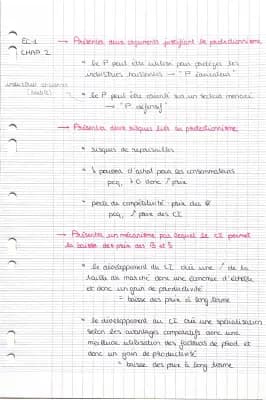 EC 1
CHAP 2
→ Présenter deux arguments justifiant le protectionnisme
• le P peut être utilisé pour protéger les
industries naissantes → "P éducateur"
industries
(textile)
• le P peut être orienté sur un secteur menacé
→ "P défensif"
→ Présenter deux risques liés au protectionnisme
• risques de représailles
• ↓ pouvoir d'achat pour les consommateurs
pcq, ↓ donc ↗ prix
• perte de compétitivité prix des
pcq, ↗ prix des CI
→ Présenter un mécanisme par lequel le CI permet
la baisse des prix des B et S
• le développement du CI crée une ↗ de la
taille du marché donc une économie d'échelle
et donc un gain de productivité
= baisse des prix à long terme
• le développement du CI crée une spécialisation
selon les avantages comparatifs donc une
meilleure utilisation des facteurs de prod. et
donc un gain de productivité
= baisse des prix à long terme